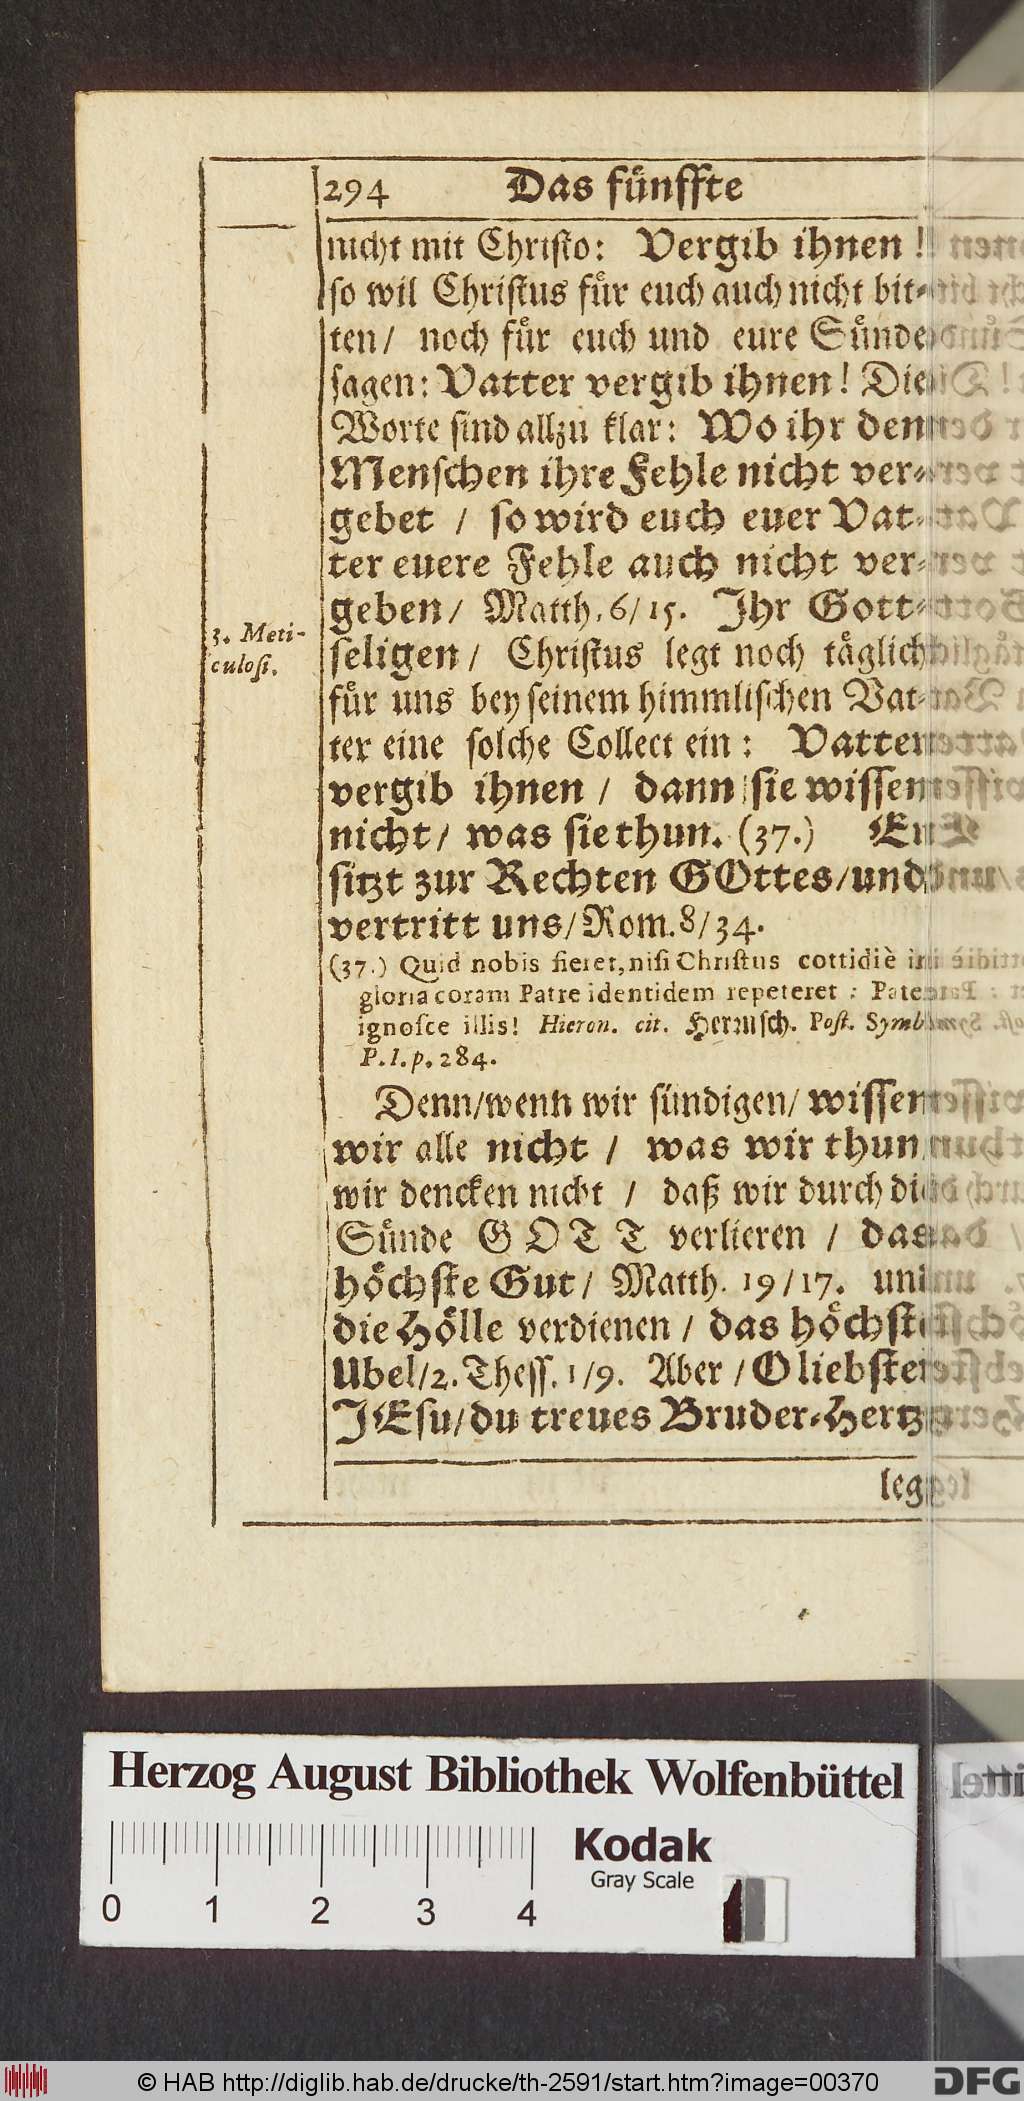 294 Das fünffte
nicht mit Christo: Vergib ihnen!
so wil Christus für euch auch nicht bit-
ten/ noch für euch und eure Sünde
sagen: Vatter vergib ihnen! Die
Worte sind allzu klar: Wo ihr den
Menschen ihre Fehle nicht ver-
gebet / so wird euch euer Vat-
ter euere Fehle auch nicht ver-
geben/ Matth. 6/15. Ihr Gott-
3. Meti-
culosi.
seligen/ Christus legt noch täglich
für uns bey seinem himmlischen Vat-
ter eine solche Collect ein: Vatter
vergib ihnen / dann sie wissen
nicht/ was sie thun. (37.) Er
sitzt zur Rechten GOttes/und
vertritt uns/Rom. 8/34.
(37.) Quid nobis fieret, nisi Christus cottidiè in
gloria coram Patre identidem repeteret: Pater
ignosce illis! Hieron. cit. Herrnsch. Post. Symb.
P. I. p. 284.
Denn/wenn wir sündigen/ wissen
wir alle nicht / was wir thun
wir dencken nicht / daß wir durch die
Sünde GOTT verlieren / das
höchste Gut/ Matth. 19/17. und
die Hölle verdienen / das höchste
Ubel/2. Thess. 1/9. Aber / O liebster
JEsu/du treues Bruder-Hertz
leg
Herzog August Bibliothek Wolfenbüttel
Kodak
Gray Scale
0 1 2 3 4
© HAB http://diglib.hab.de/drucke/th-2591/start.htm?image=00370
DFG